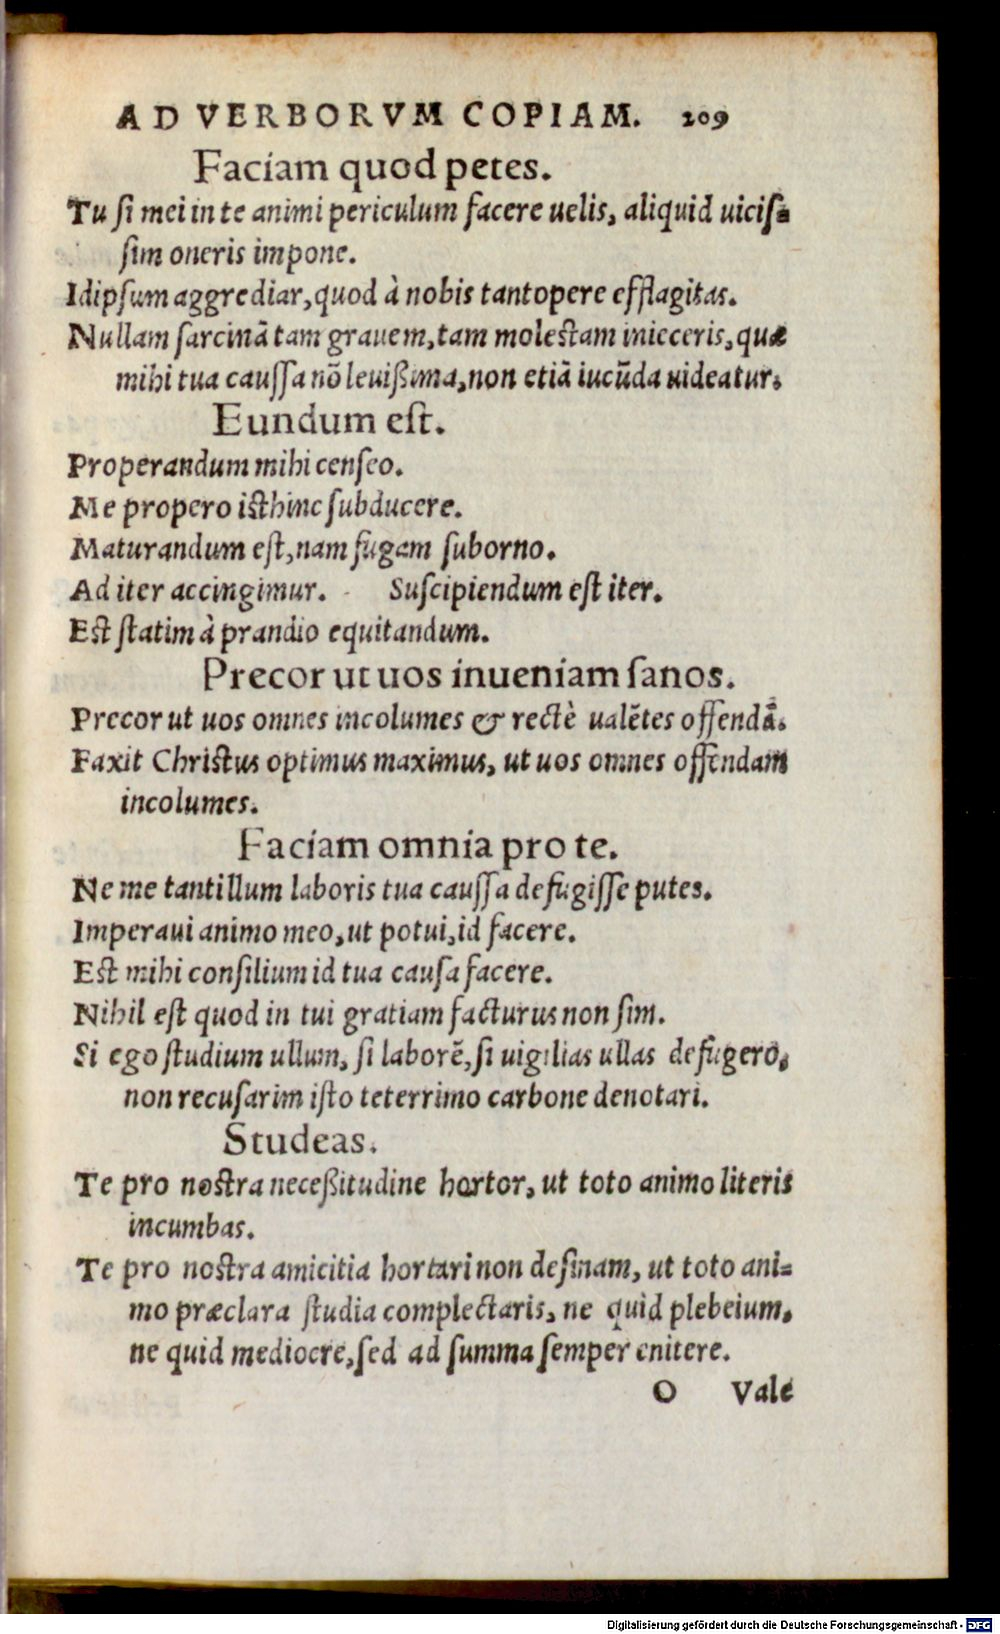 AD VERBORVM COPIAM. 209
Faciam quod petes.
Tu ſi mei in te animi periculum facere uelis, aliquid uiciſ-
ſim oneris impone.
Idipſum aggrediar, quod à nobis tantopere efflagitas.
Nullam ſarcinā tam grauem, tam moleſtam inieceris, quæ
mihi tua cauſſa nō leuißima, non etiā iucūda uideatur.
Eundum eſt.
Properandum mihi cenſeo.
Me propero iſthinc ſubducere.
Maturandum eſt, nam fugam ſuborno.
Ad iter accingimur. Suſcipiendum eſt iter.
Eſt ſtatim à prandio equitandum.
Precor ut uos inueniam ſanos.
Precor ut uos omnes incolumes & rectè ualētes offendā.
Faxit Chriſtus optimus maximus, ut uos omnes offendam
incolumes.
Faciam omnia pro te.
Ne me tantillum laboris tua cauſſa defugiſſe putes.
Imperaui animo meo, ut potui, id facere.
Eſt mihi conſilium id tua cauſa facere.
Nihil eſt quod in tui gratiam facturus non ſim.
Si ego ſtudium ullum, ſi laborē, ſi uigilias ullas defugero,
non recuſarim iſto teterrimo carbone denotari.
Studeas.
Te pro noſtra neceßitudine hortor, ut toto animo literis
incumbas.
Te pro noſtra amicitia hortari non deſinam, ut toto ani-
mo præclara ſtudia complectaris, ne quid plebeium,
ne quid mediocre, ſed ad ſumma ſemper enitere.
O Vale
Digitalisierung gefördert durch die Deutsche Forschungsgemeinschaft - DFG